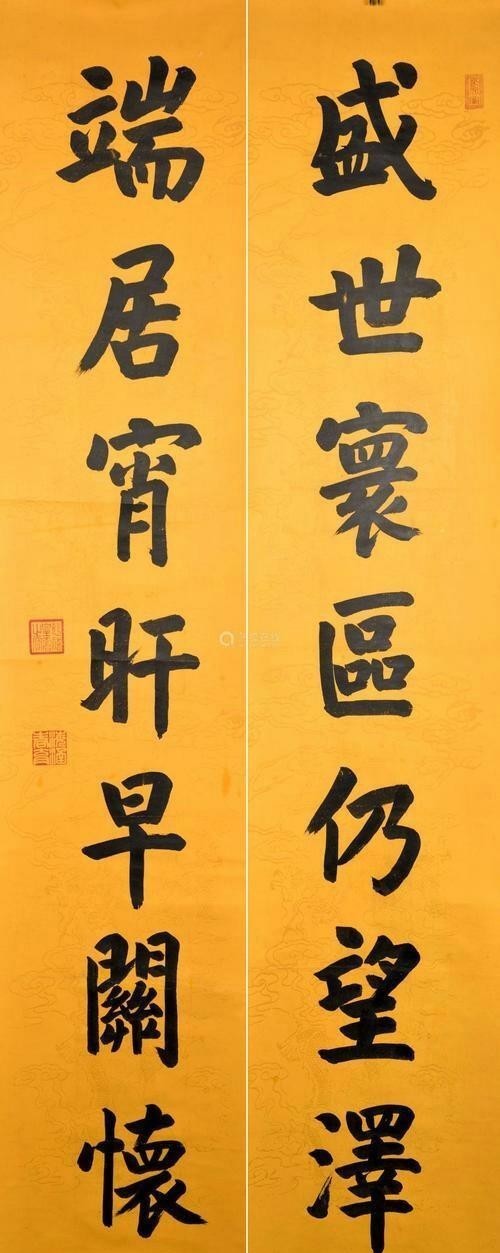 盛世寰區仍望澤
端居宵旰早關懷